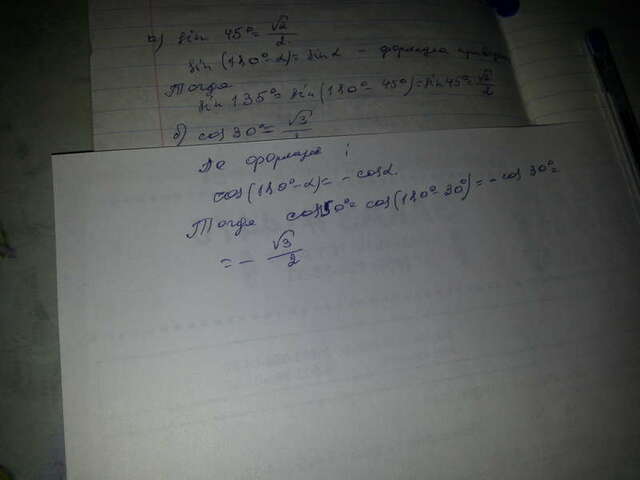 а) sin 45° = √2/2
sin (180° - α) = sin α - формула
Тогда
sin 135° = sin (180° - 45°) = sin 45° = √2/2
б) cos 30° = √3/
По формуле:
cos (180° - α) = - cos α.
Тогда cos 50° = cos (180° - 30°) = - cos 30° =
= - √3/2